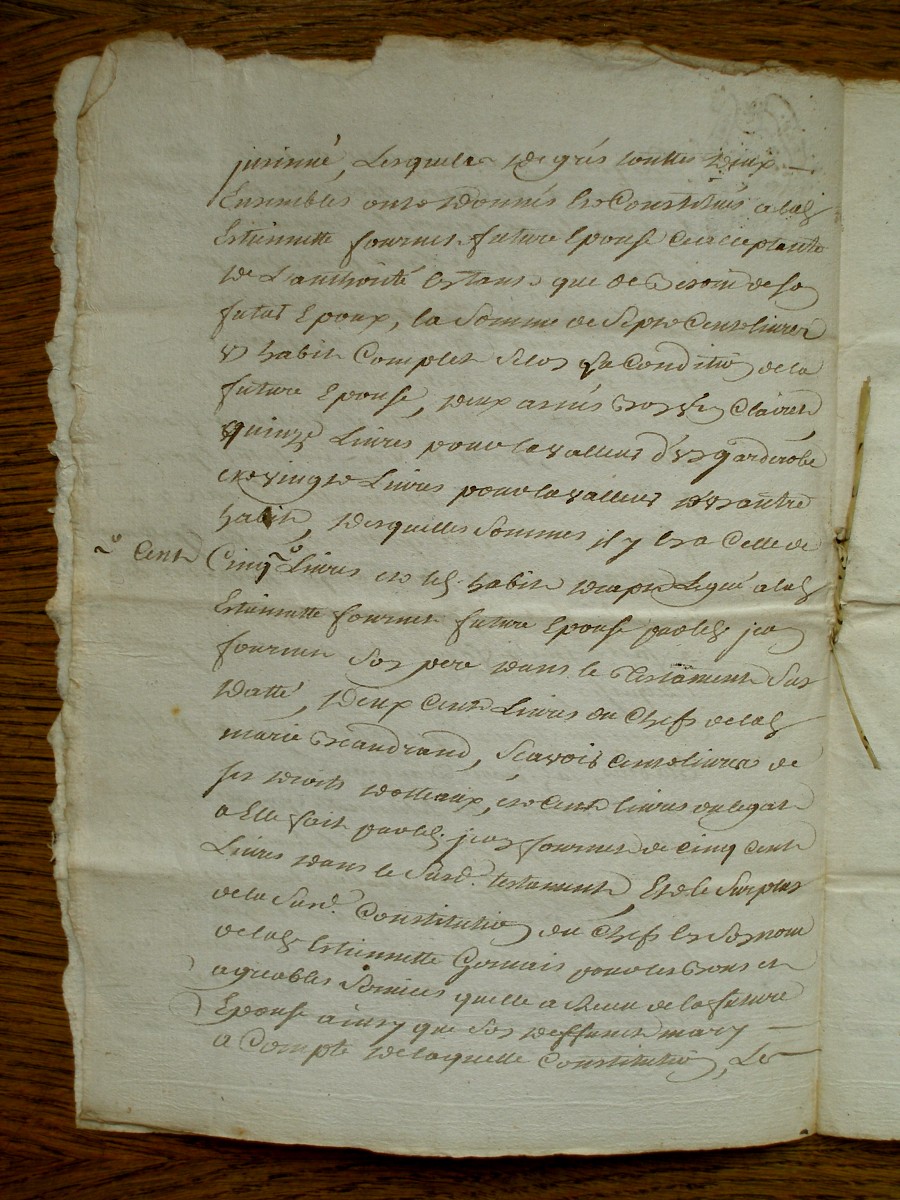 lesquelles de grés touttes deux
Ensembles ont donnés et Constitués a lad.
Estiennette fournier future Epouse cy acceptante
de L'authorité Entant que de besoin de so
futur Epoux, la Somme de Sept Cent livres
un habit Complet Selon Sa Condition de la
future Epouse, deux
quinze Livres pour la valleur d'un garderobe
et vingt Livres pour la valleur d'un autre
habit, desquelles Sommes il y En a Celle de
Cent Cinq.te Livres et led. habit Legué a lad.
Estiennette fournier future Epouse par led. jean
fournier Son pere dans le Testament Sus
datté, deux Cent Livres du Chef de lad.
marie Scavoir Cent livres de
ses droits dottaux, et Cent livres du legat
a Elle fait par led. jean fournier de Cinq Cent
Livres dans le Susd. testament, Et le Surplus
de la Susd. Constitution du Chef et Son nom
de lad. Estiennette pour les bons et
agreables Services quelle a Receu de la future
Epouse ainsy que Son deffunt mary
a Compte de laquelle Constitution, Le